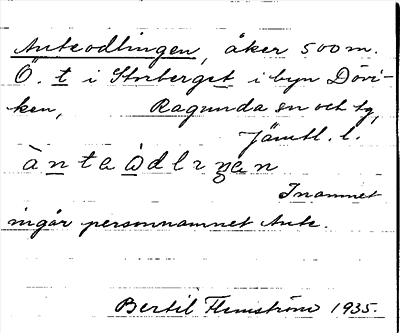 Anteodlingen, åker 500 m.
Ö. t i Storberget i byn Dövi-
ken, Ragunda sn och tg,
Jämtl. l.
àntaòdlıŋan
I namnet
ingår personnamnet Ante.
Bertil Flemström 1935.